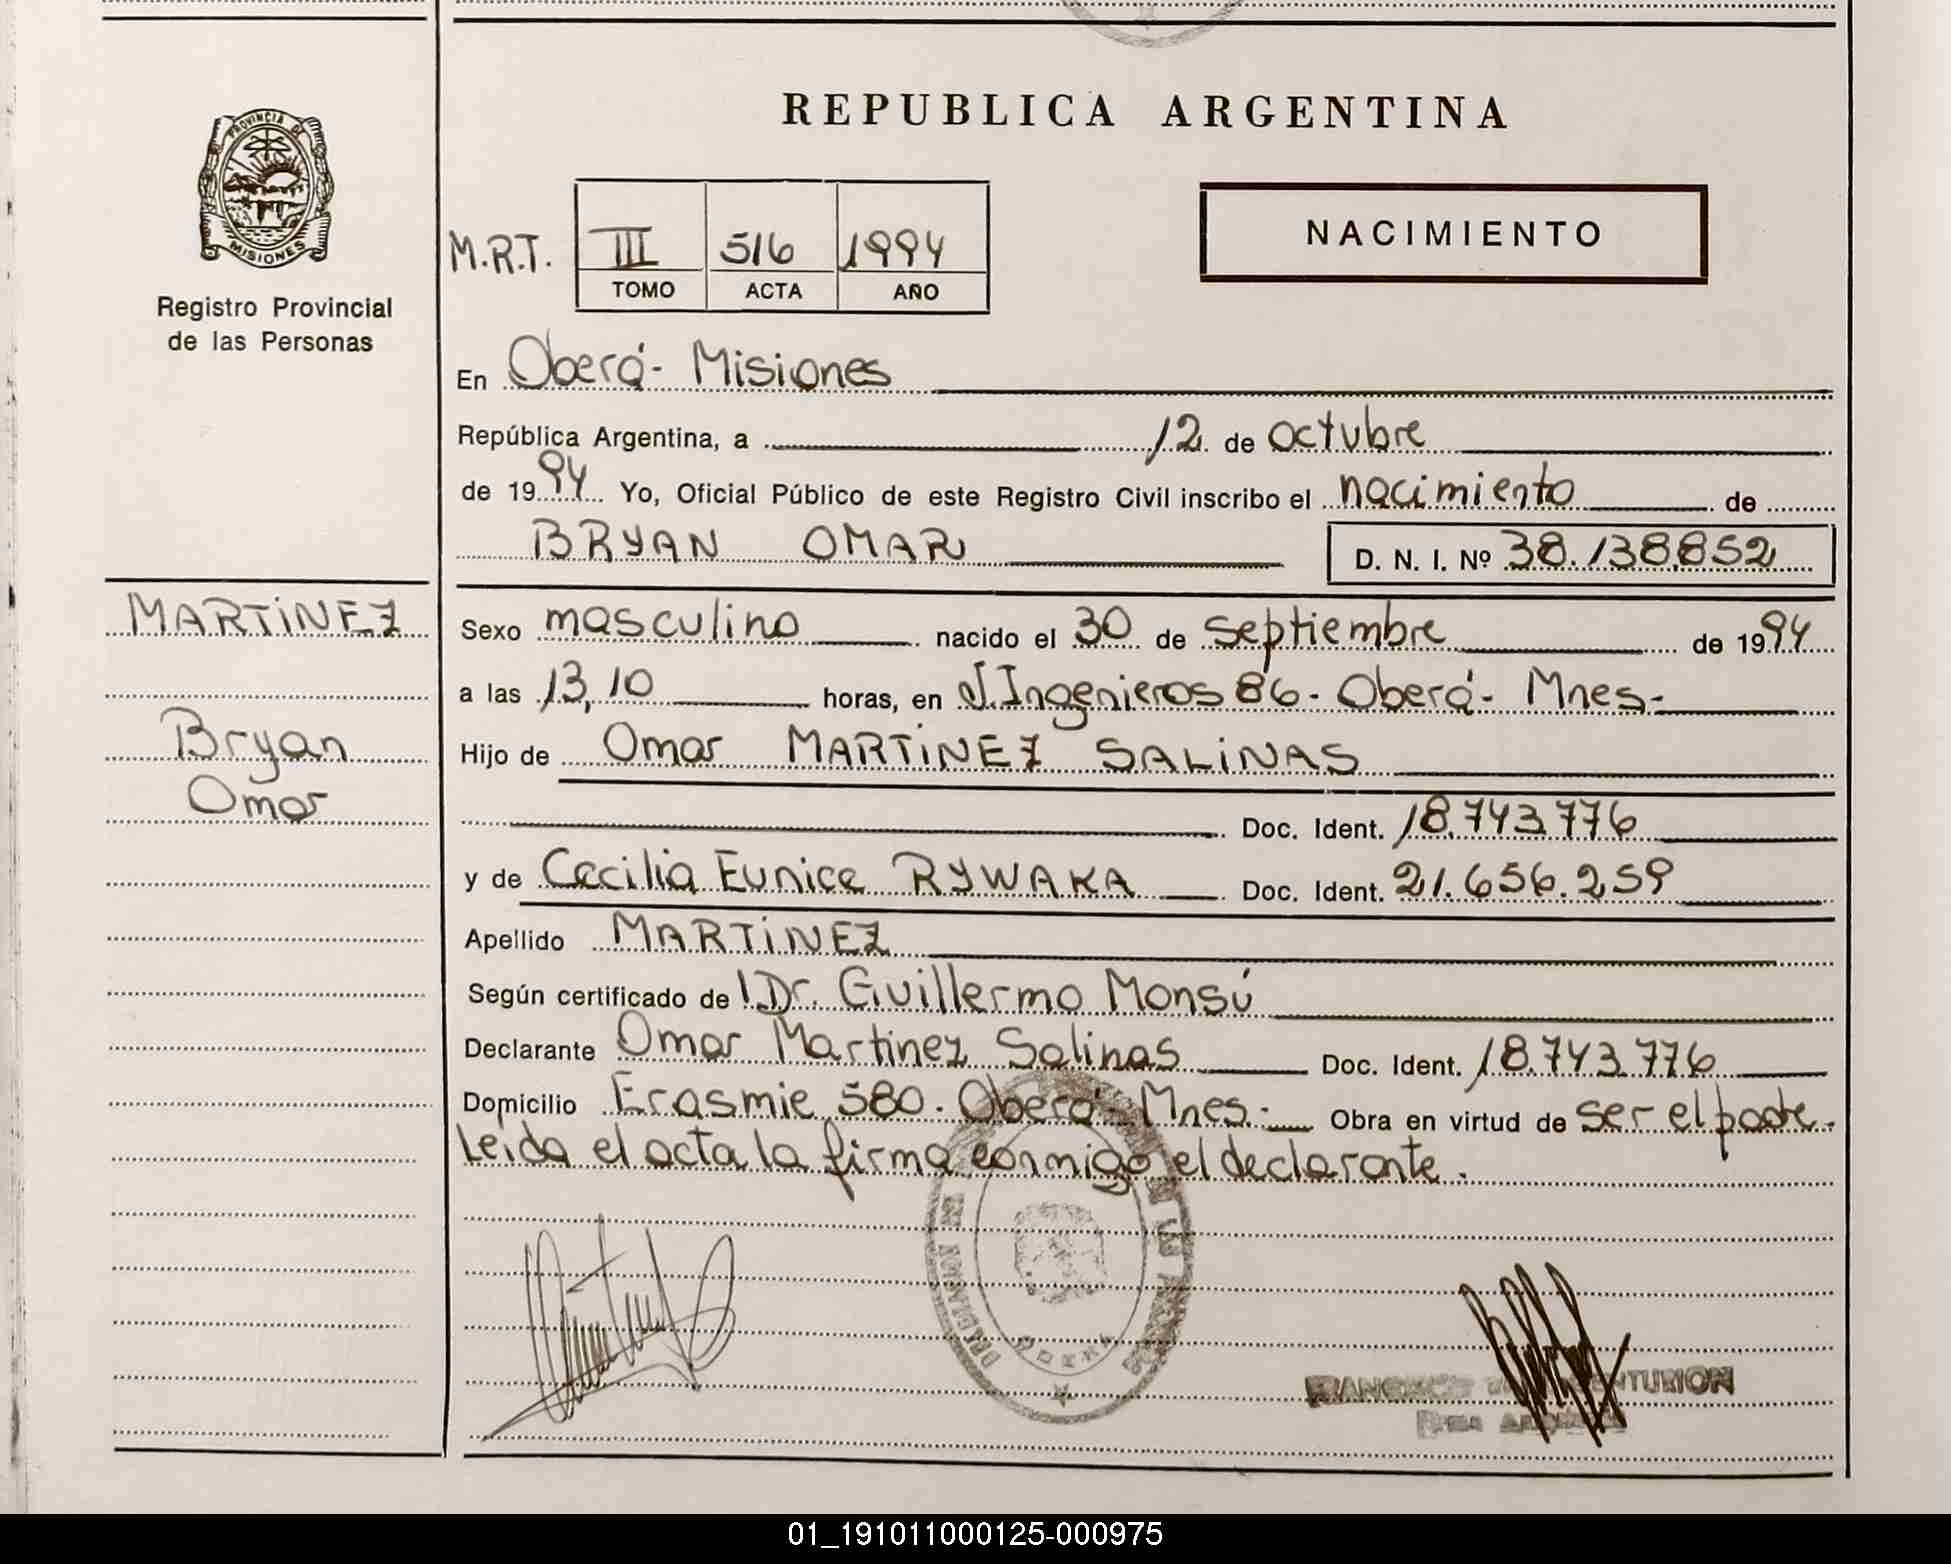 REPUBLICA ARGENTINA
PROVINCIA DE
MISIONES
Registro Provincial
de las Personas
M.R.T. III 516 1994
TOMO ACTA AÑO
NACIMIENTO
En Oberá - Misiones
República Argentina, a 12 de octubre
de 1994 Yo, Oficial Público de este Registro Civil inscribo el nacimiento de
BRYAN OMAR D. N. I. Nº 38.138.852
MARTINEZ
Bryan
Omar
Sexo masculino nacido el 30 de septiembre de 1994
a las 13,10 horas, en J. Ingenieros 86 - Oberá - Mnes.-
Hijo de Omar MARTINEZ SALINAS
Doc. Ident. 18.743.776
y de Cecilia Eunice RYWAKA Doc. Ident. 21.656.259
Apellido MARTINEZ
Según certificado de Dr. Guillermo Monsú
Declarante Omar Martinez Salinas Doc. Ident. 18.743.776
Domicilio Erasmie 580. Oberá - Mnes.- Obra en virtud de ser el padre.
Leida el acta la firma conmigo el declarante.
01_191011000125-000975